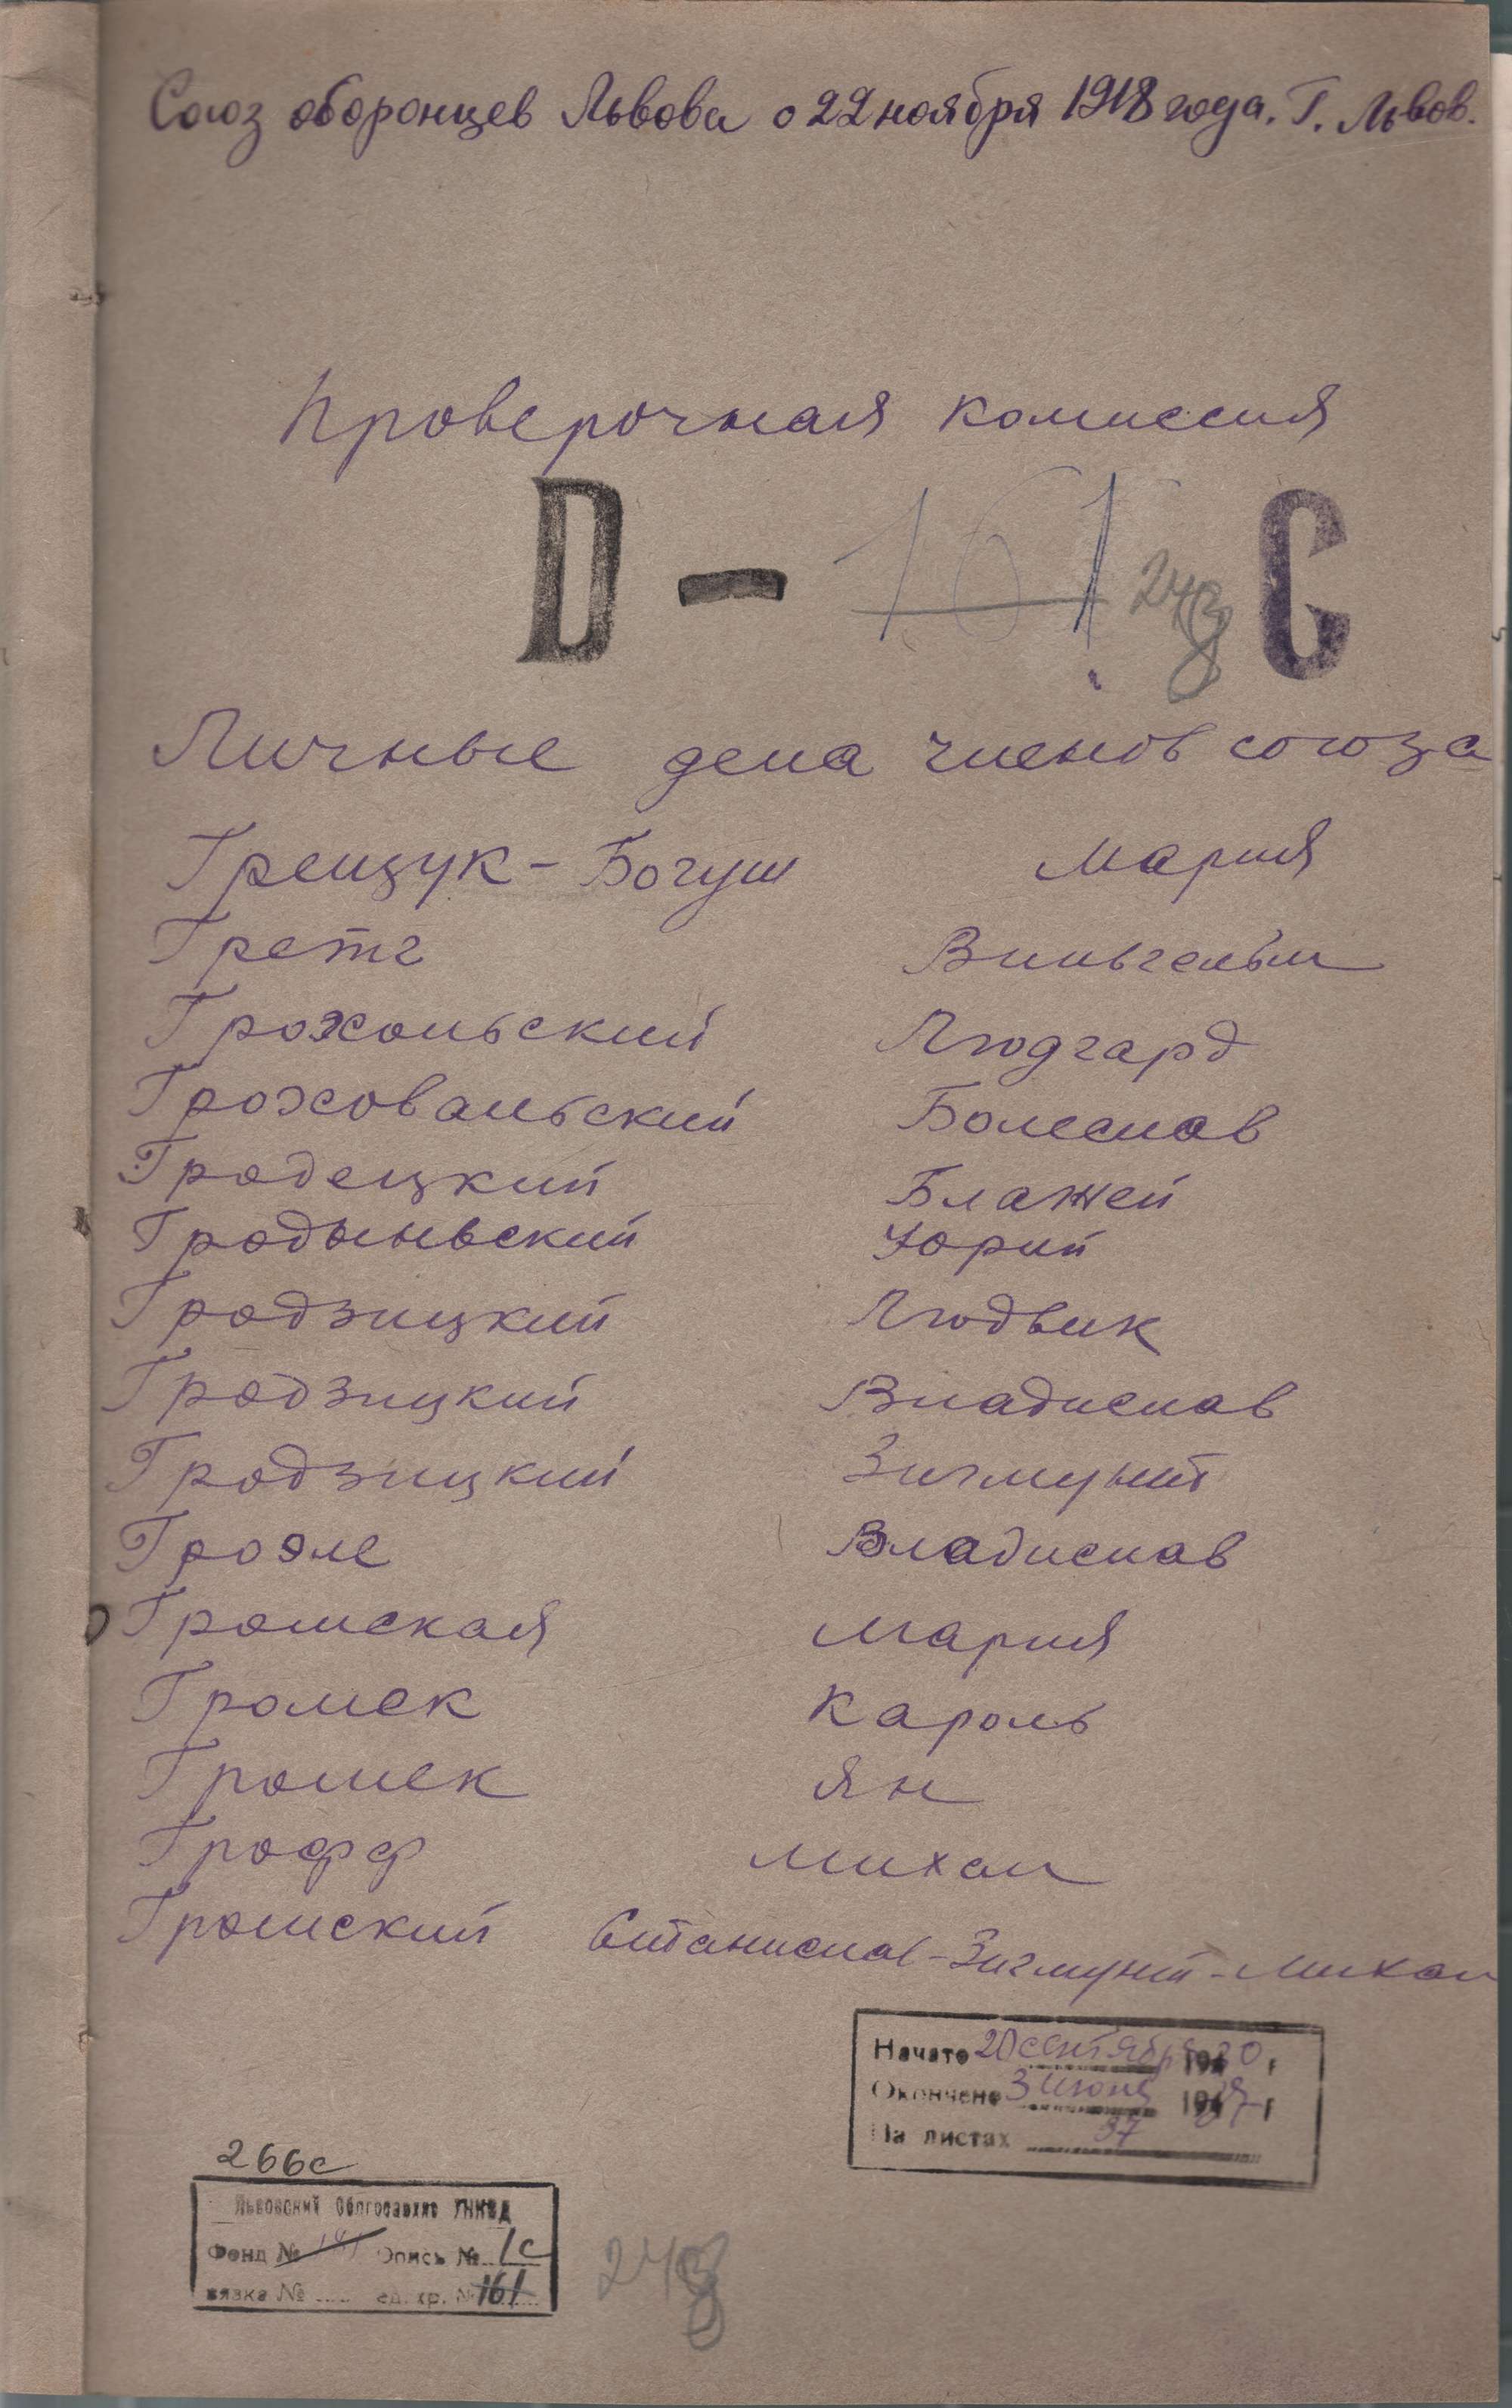 Союз оборонцев Львова о 22 ноября 1918 года. Г. Львов.
Проверочная комиссия
D - 101 248 С
Личные дела членов союза
Грещук - Богуш Мария
Гретг Вильгельм
Грохольский Людгард
Гроховальский Болеслав
Гродецкий Блажей
Гродыньский Юрий
Гродзицкий Людвик
Гродзицкий Владислав
Гродзицкий Зигмунт
Гроэле Владислав
Громская Мария
Громек Кароль
Громек Ян
Грофф Михал
Громский Станислав-Зигмунт-Михал
Начато 20 сентября 1930 г
Окончено 3 июня 19 г
На листах 37
266с
Львовский Облгосархив УНКВД
Фонд № Опись № 1с
вязка № ед. хр. № 161
248